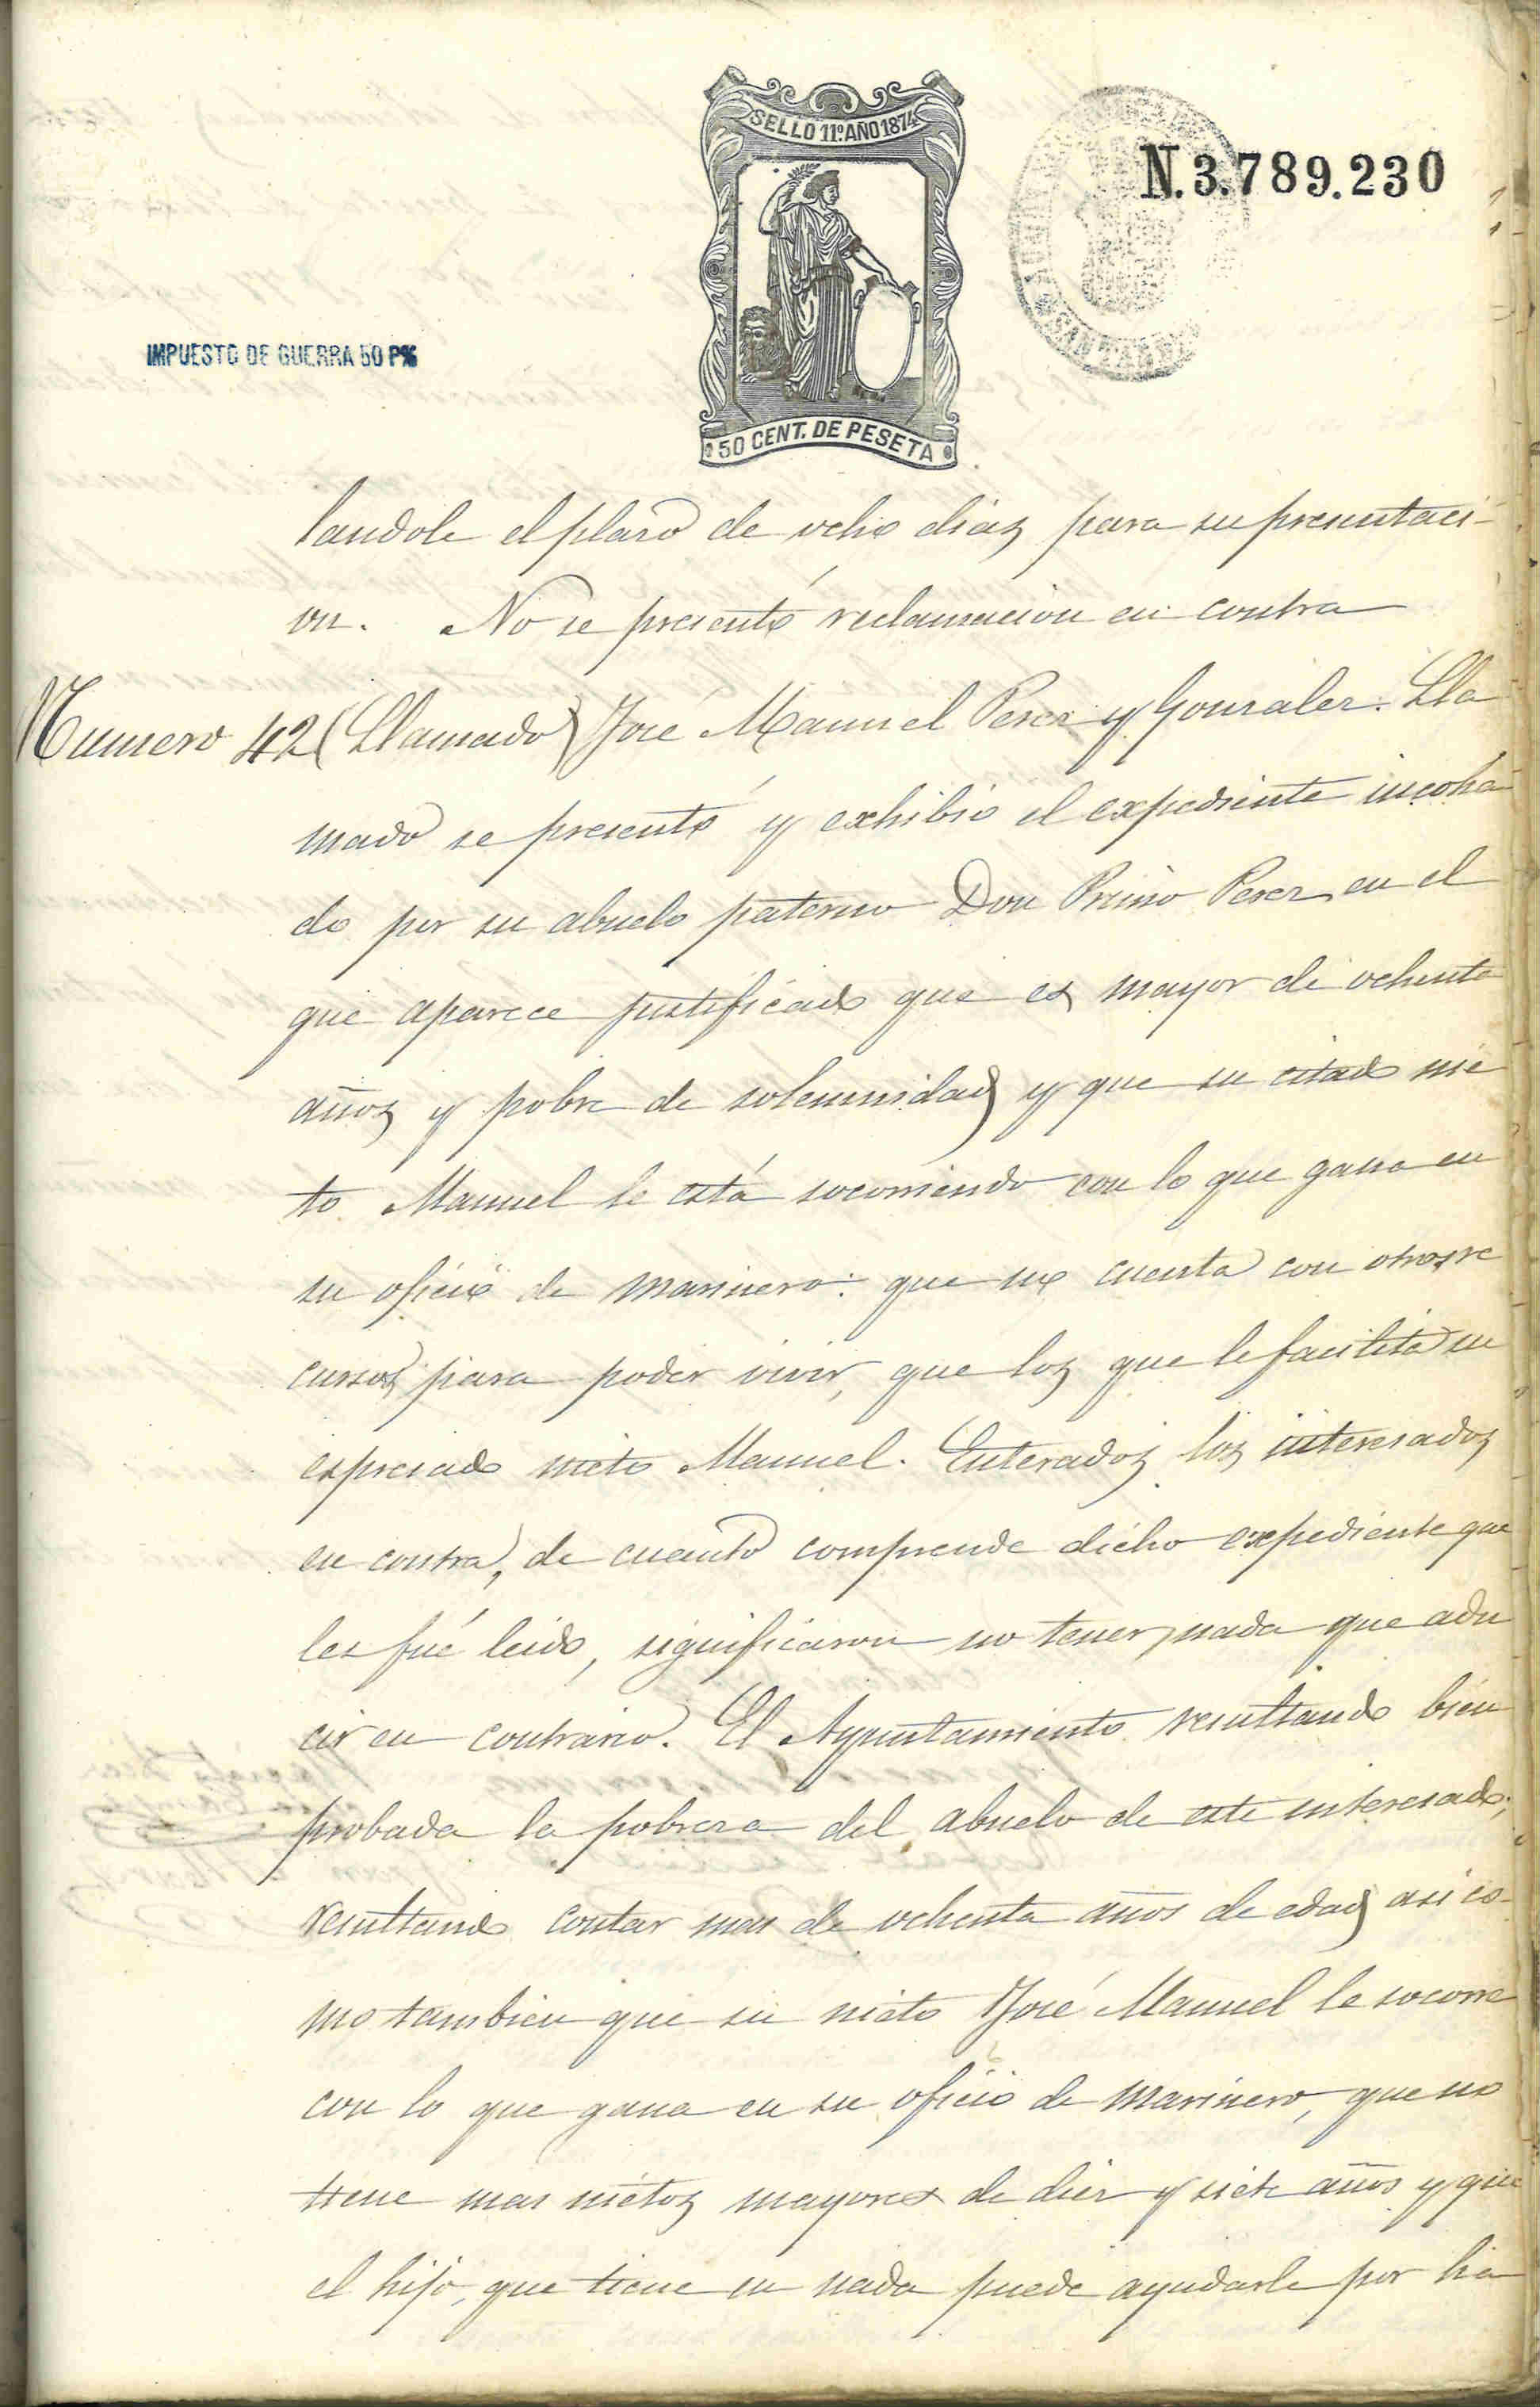 SELLO 11º AÑO 1874
N. 3.789.230
IMPUESTO DE GUERRA 50 P%
50 CENT. DE PESETA
landole el plazo de ocho dias para su presentaci-
on. No se presentó reclamacion en contra
Numero 42 (Llamado) José Manuel Perez y Gonzalez. Lla
mado se presentó y exhibió el expediente incoha
do por su abuelo paterno Don Primo Perez en el
que aparece justificado que es mayor de ochenta
años y pobre de solemnidad y que su citado nie
to Manuel le está socorriendo con lo que gana en
su oficio de marinero: que no cuenta con otros re
cursos para poder vivir, que los que le facilita su
espresado nieto Manuel. Enterados los interesados
en contra, de cuanto comprende dicho expediente que
les fué leido, significaron no tener nada que adu
cir en contrario. El Ayuntamiento resultando bien
probada la pobreza del abuelo de este interesado;
resultando contar mas de ochenta años de edad asi co-
mo tambien que su nieto José Manuel le socorre
con lo que gana en su oficio de marinero, que no
tiene mas nietos mayores de diez y siete años y que
el hijo, que tiene en nada puede ayudarle por ha